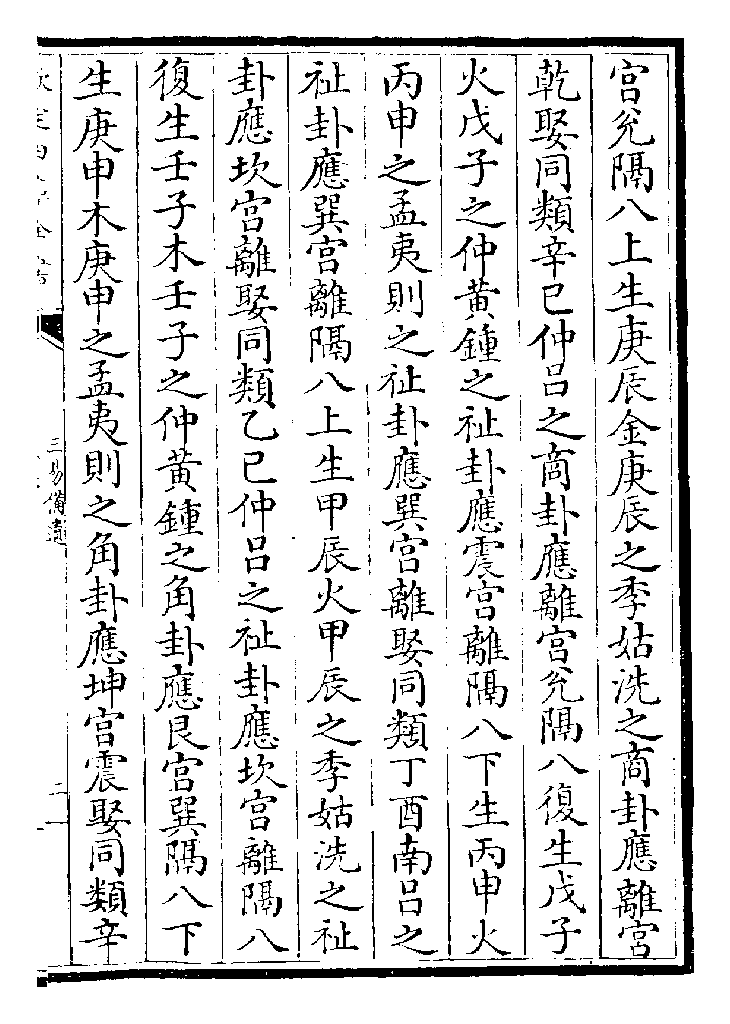 宮兊隔八上生庚辰金庚辰之季姑洗之商卦應離宮
乾娶同類辛巳仲吕之商卦應離宮兊隔八復生戊子
火戊子之仲黄鍾之祉卦應震宮離隔八下生丙申火
丙申之孟夷則之祉卦應巽宮離娶同類丁酉南吕之
祉卦應巽宮離隔八上生甲辰火甲辰之季姑洗之祉
卦應坎宮離娶同類乙巳仲吕之祉卦應坎宮離隔八
復生壬子木壬子之仲黄鍾之角卦應艮宮巽隔八下
生庚申木庚申之孟夷則之角卦應坤宮震娶同類辛
欽定四庫全書
三易備遺